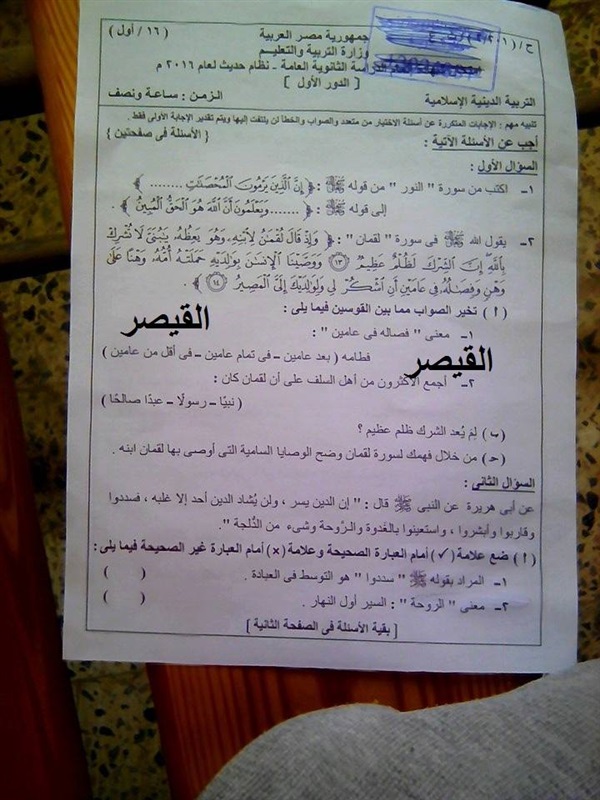 جمهورية مصر العربية
( ١٦ / أول )
وزارة التربية والتعليم
الدراسة الثانوية العامة - نظام حديث لعام ٢٠١٦ م
[ الدور الأول ]
التربية الدينية الإسلامية
الزمن : ساعة ونصف
تنبيه مهم : الإجابات المتكررة عن أسئلة الاختيار من متعدد والصواب والخطأ لن يلتفت إليها ويتم تقدير الإجابة الأولى فقط .
أجب عن الأسئلة الآتية :
( الأسئلة فى صفحتين )
السؤال الأول :
١- اكتب من سورة " النور " من قوله ﷺ : ﴿ إِنَّ الَّذِينَ يَرْمُونَ الْمُحْصَنَاتِ ........
إلى قوله ﷺ : ( ....... وَيَعْلَمُونَ أَنَّ اللَّهَ هُوَ الْحَقُّ الْمُبِينُ ﴾ .
٢- يقول الله ﷺ فى سورة " لقمان " : ﴿ وَإِذْ قَالَ لُقْمَانُ لِابْنِهِ وَهُوَ يَعِظُهُ يَا بُنَيَّ لَا تُشْرِكْ
بِاللَّهِ إِنَّ الشِّرْكَ لَظُلْمٌ عَظِيمٌ ١٣ وَوَصَّيْنَا الْإِنسَانَ بِوَالِدَيْهِ حَمَلَتْهُ أُمُّهُ وَهْنًا عَلَى
وَهْنٍ وَفِصَالُهُ فِي عَامَيْنِ أَنِ اشْكُرْ لِي وَلِوَالِدَيْكَ إِلَيَّ الْمَصِيرُ ١٤ ﴾ .
( أ ) تخير الصواب مما بين القوسين فيما يلى :
القيصر
١- معنى " فصاله فى عامين " :
فطامه ( بعد عامين – فى تمام عامين – فى أقل من عامين )
القيصر
٢- أجمع الأكثرون من أهل السلف على أن لقمان كان :
( نبيًا – رسولًا – عبدًا صالحًا )
( ب ) لِمَ يُعد الشرك ظلم عظيم ؟
( جـ ) من خلال فهمك لسورة لقمان وضح الوصايا السامية التى أوصى بها لقمان ابنه .
السؤال الثانى :
عن أبى هريرة عن النبى ﷺ قال : " إن الدين يسر ، ولن يُشاد الدين أحد إلا غلبه ، فسددوا
وقاربوا وأبشروا ، واستعينوا بالغدوة والرَّوحة وشىء من الدُّلجة " .
( أ ) ضع علامة (✓) أمام العبارة الصحيحة وعلامة (×) أمام العبارة غير الصحيحة فيما يلى :
١- المراد بقوله ﷺ " سددوا " هو التوسط فى العبادة . ( )
٢- معنى " الروحة " : السير أول النهار . ( )
[ بقية الأسئلة فى الصفحة الثانية ]